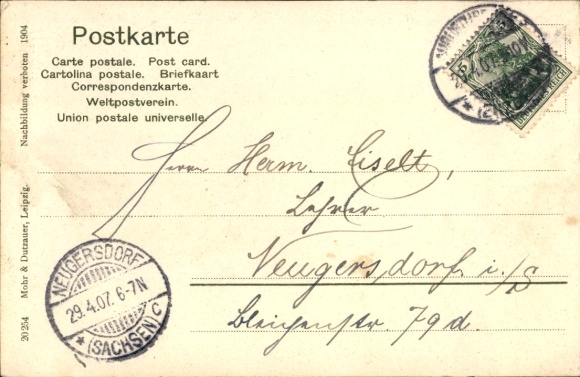 Postkarte
Carte postale. Post card.
Cartolina postale. Briefkaart
Correspondenzkarte.
Weltpostverein.
Union postale universelle.
Nachbildung verboten 1904
Mohr & Dutzauer, Leipzig.
20254
DEUTSCHES REICH
Herrn Herm. Eiselt,
Lehrer
Neugersdorf i./S
Bleichenstr. 79d.
NEUGERSDORF
29.4.07. 6-7N
* (SACHSEN) C